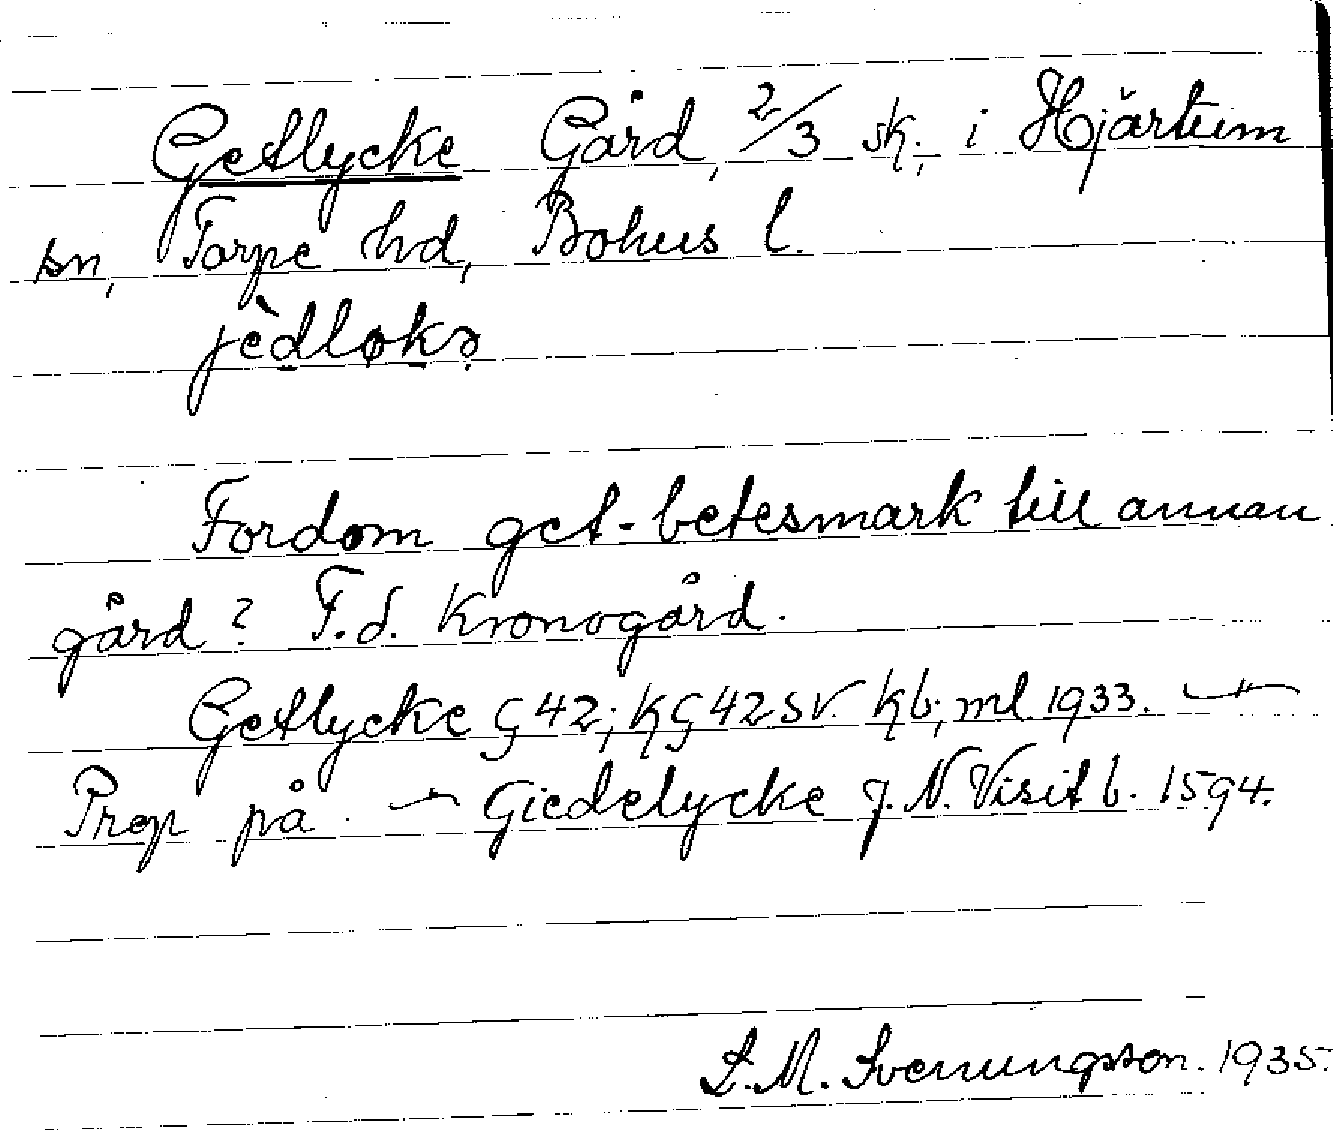 Getlycke Gård, 2/3 sk., i Hjärtum
sn, Torpe hd, Bohus l.
jèdløkə
Fordom get-betesmark till annan
gård? F.d. Kronogård.
Getlycke G 42; KG 42 SV. Kb; ml 1933. —"—
Prep på — Giedelycke J. N. Visit b. 1594.
L. M. Svenungsson. 1935.